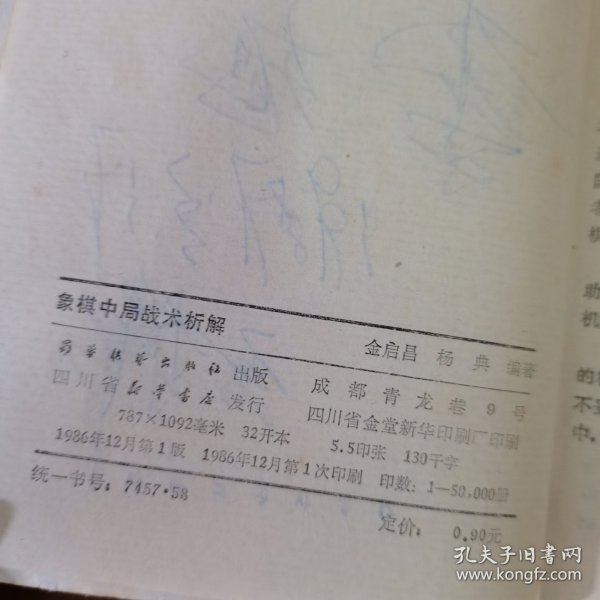 象棋中局战术析解
金启昌 杨典 编著
蜀蓉棋艺出版社 出版 成都青龙巷9号
四川省新华书店 发行 四川省金堂新华印刷厂印刷
787×1092毫米 32开本 5.5印张 130千字
1986年12月第1版 1986年12月第1次印刷 印数：1—50,000册
统一书号：7457·58 定价：0.90元
助
机
的
不
中。
孔夫子旧书网
www.kongfz.com